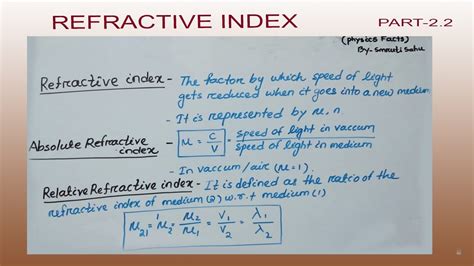 REFRACTIVE INDEX PART-2.2
(physics Facts)
By- Smruti Sahu
Refractive index - The factor by which speed of light
gets reduced when it goes into a new medium
- It is represented by μ, n.
Absolute Refractive index - μ = c/v = speed of light in vaccum / speed of light in medium
- In vaccum/air (μ=1).
Relative Refractive index - It is defined as the ratio of the
refractive index of medium (2) w.r.t medium (1)
μ₂₁ = ¹μ₂ = μ₂/μ₁ = v₁/v₂ = λ₁/λ₂